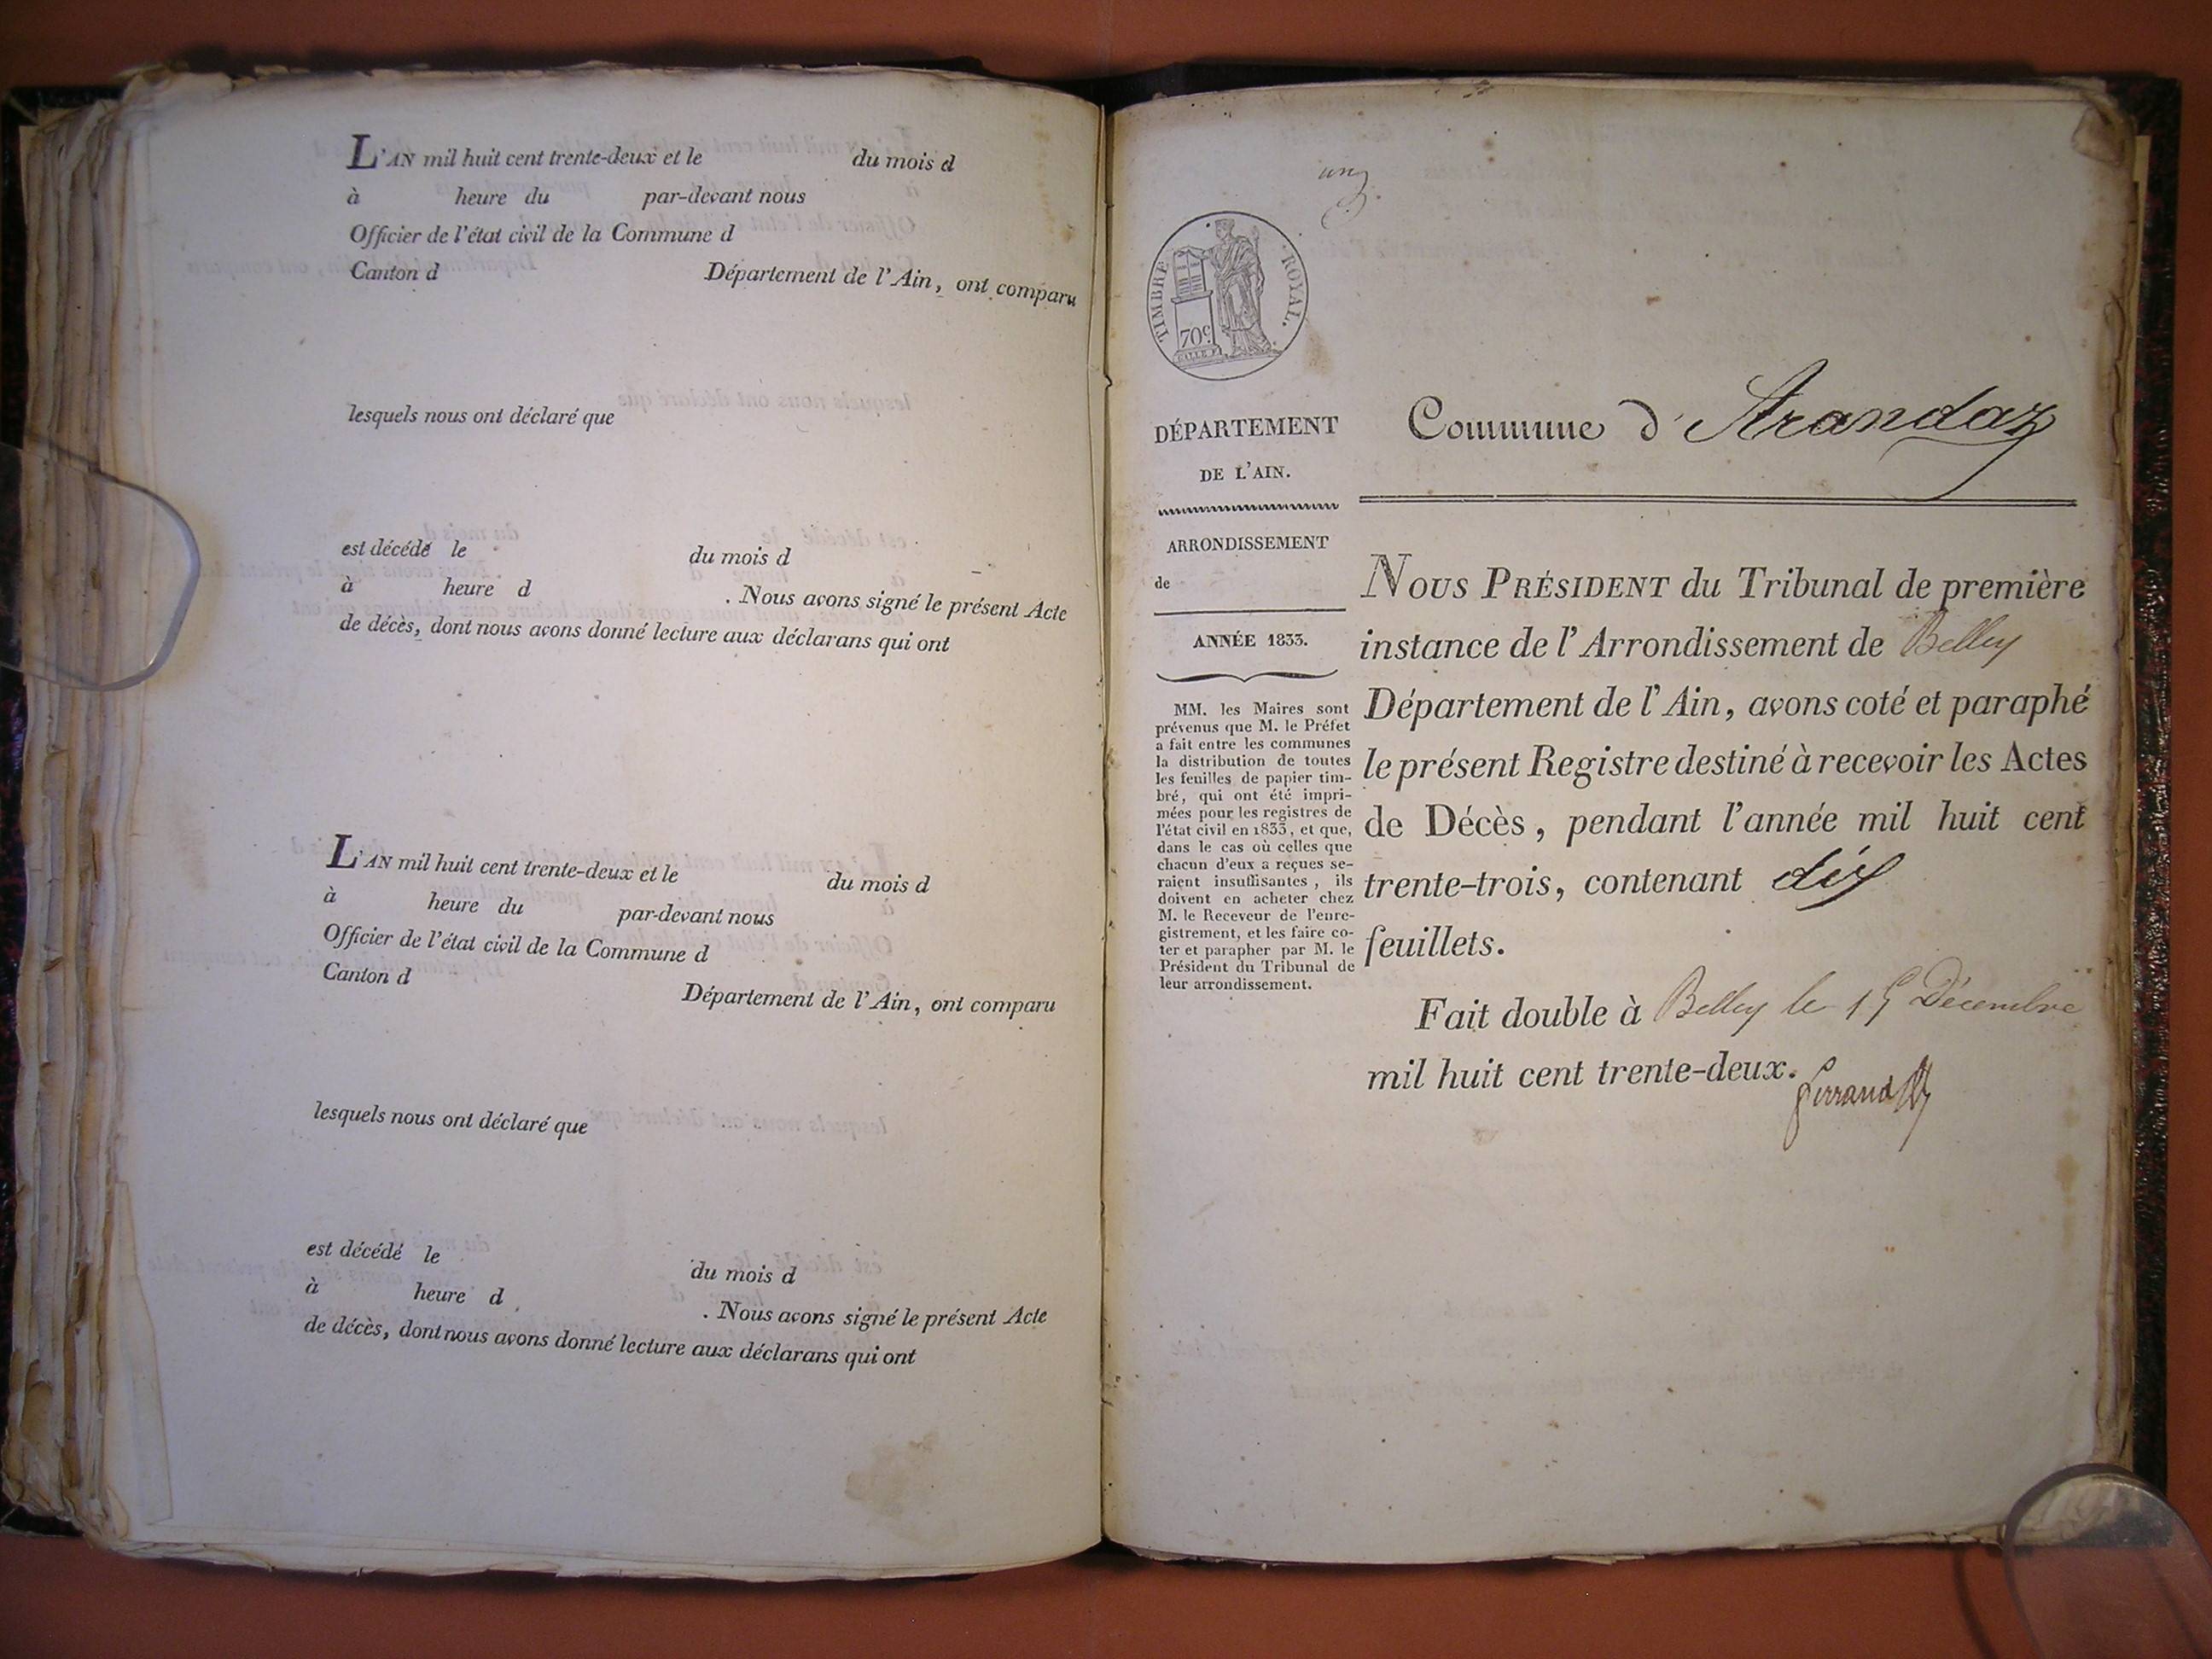 L'AN mil huit cent trente-deux et le du mois d
à heure du par-devant nous
Officier de l'état civil de la Commune d
Canton d Département de l'Ain, ont comparu
lesquels nous ont déclaré que
est décédé le du mois d
à heure d . Nous avons signé le présent Acte
de décès, dont nous avons donné lecture aux déclarans qui ont
L'AN mil huit cent trente-deux et le du mois d
à heure du par-devant nous
Officier de l'état civil de la Commune d
Canton d Département de l'Ain, ont comparu
lesquels nous ont déclaré que
est décédé le du mois d
à heure d . Nous avons signé le présent Acte
de décès, dont nous avons donné lecture aux déclarans qui ont
un
TIMBRE ROYAL.
70c.
DÉPARTEMENT
DE L'AIN.
ARRONDISSEMENT
de
ANNÉE 1833.
MM. les Maires sont
prévenus que M. le Préfet
a fait entre les communes
la distribution de toutes
les feuilles de papier tim-
bré, qui ont été impri-
mées pour les registres de
l'état civil en 1833, et que,
dans le cas où celles que
chacun d'eux a reçues se-
raient insuffisantes, ils
doivent en acheter chez
M. le Receveur de l'enre-
gistrement, et les faire co-
ter et parapher par M. le
Président du Tribunal de
leur arrondissement.
Commune d'Arandaz
NOUS PRÉSIDENT du Tribunal de première
instance de l'Arrondissement de Belley
Département de l'Ain, avons coté et paraphé
le présent Registre destiné à recevoir les Actes
de Décès, pendant l'année mil huit cent
trente-trois, contenant dix
feuillets.
Fait double à Belley le 15 Décembre
mil huit cent trente-deux.